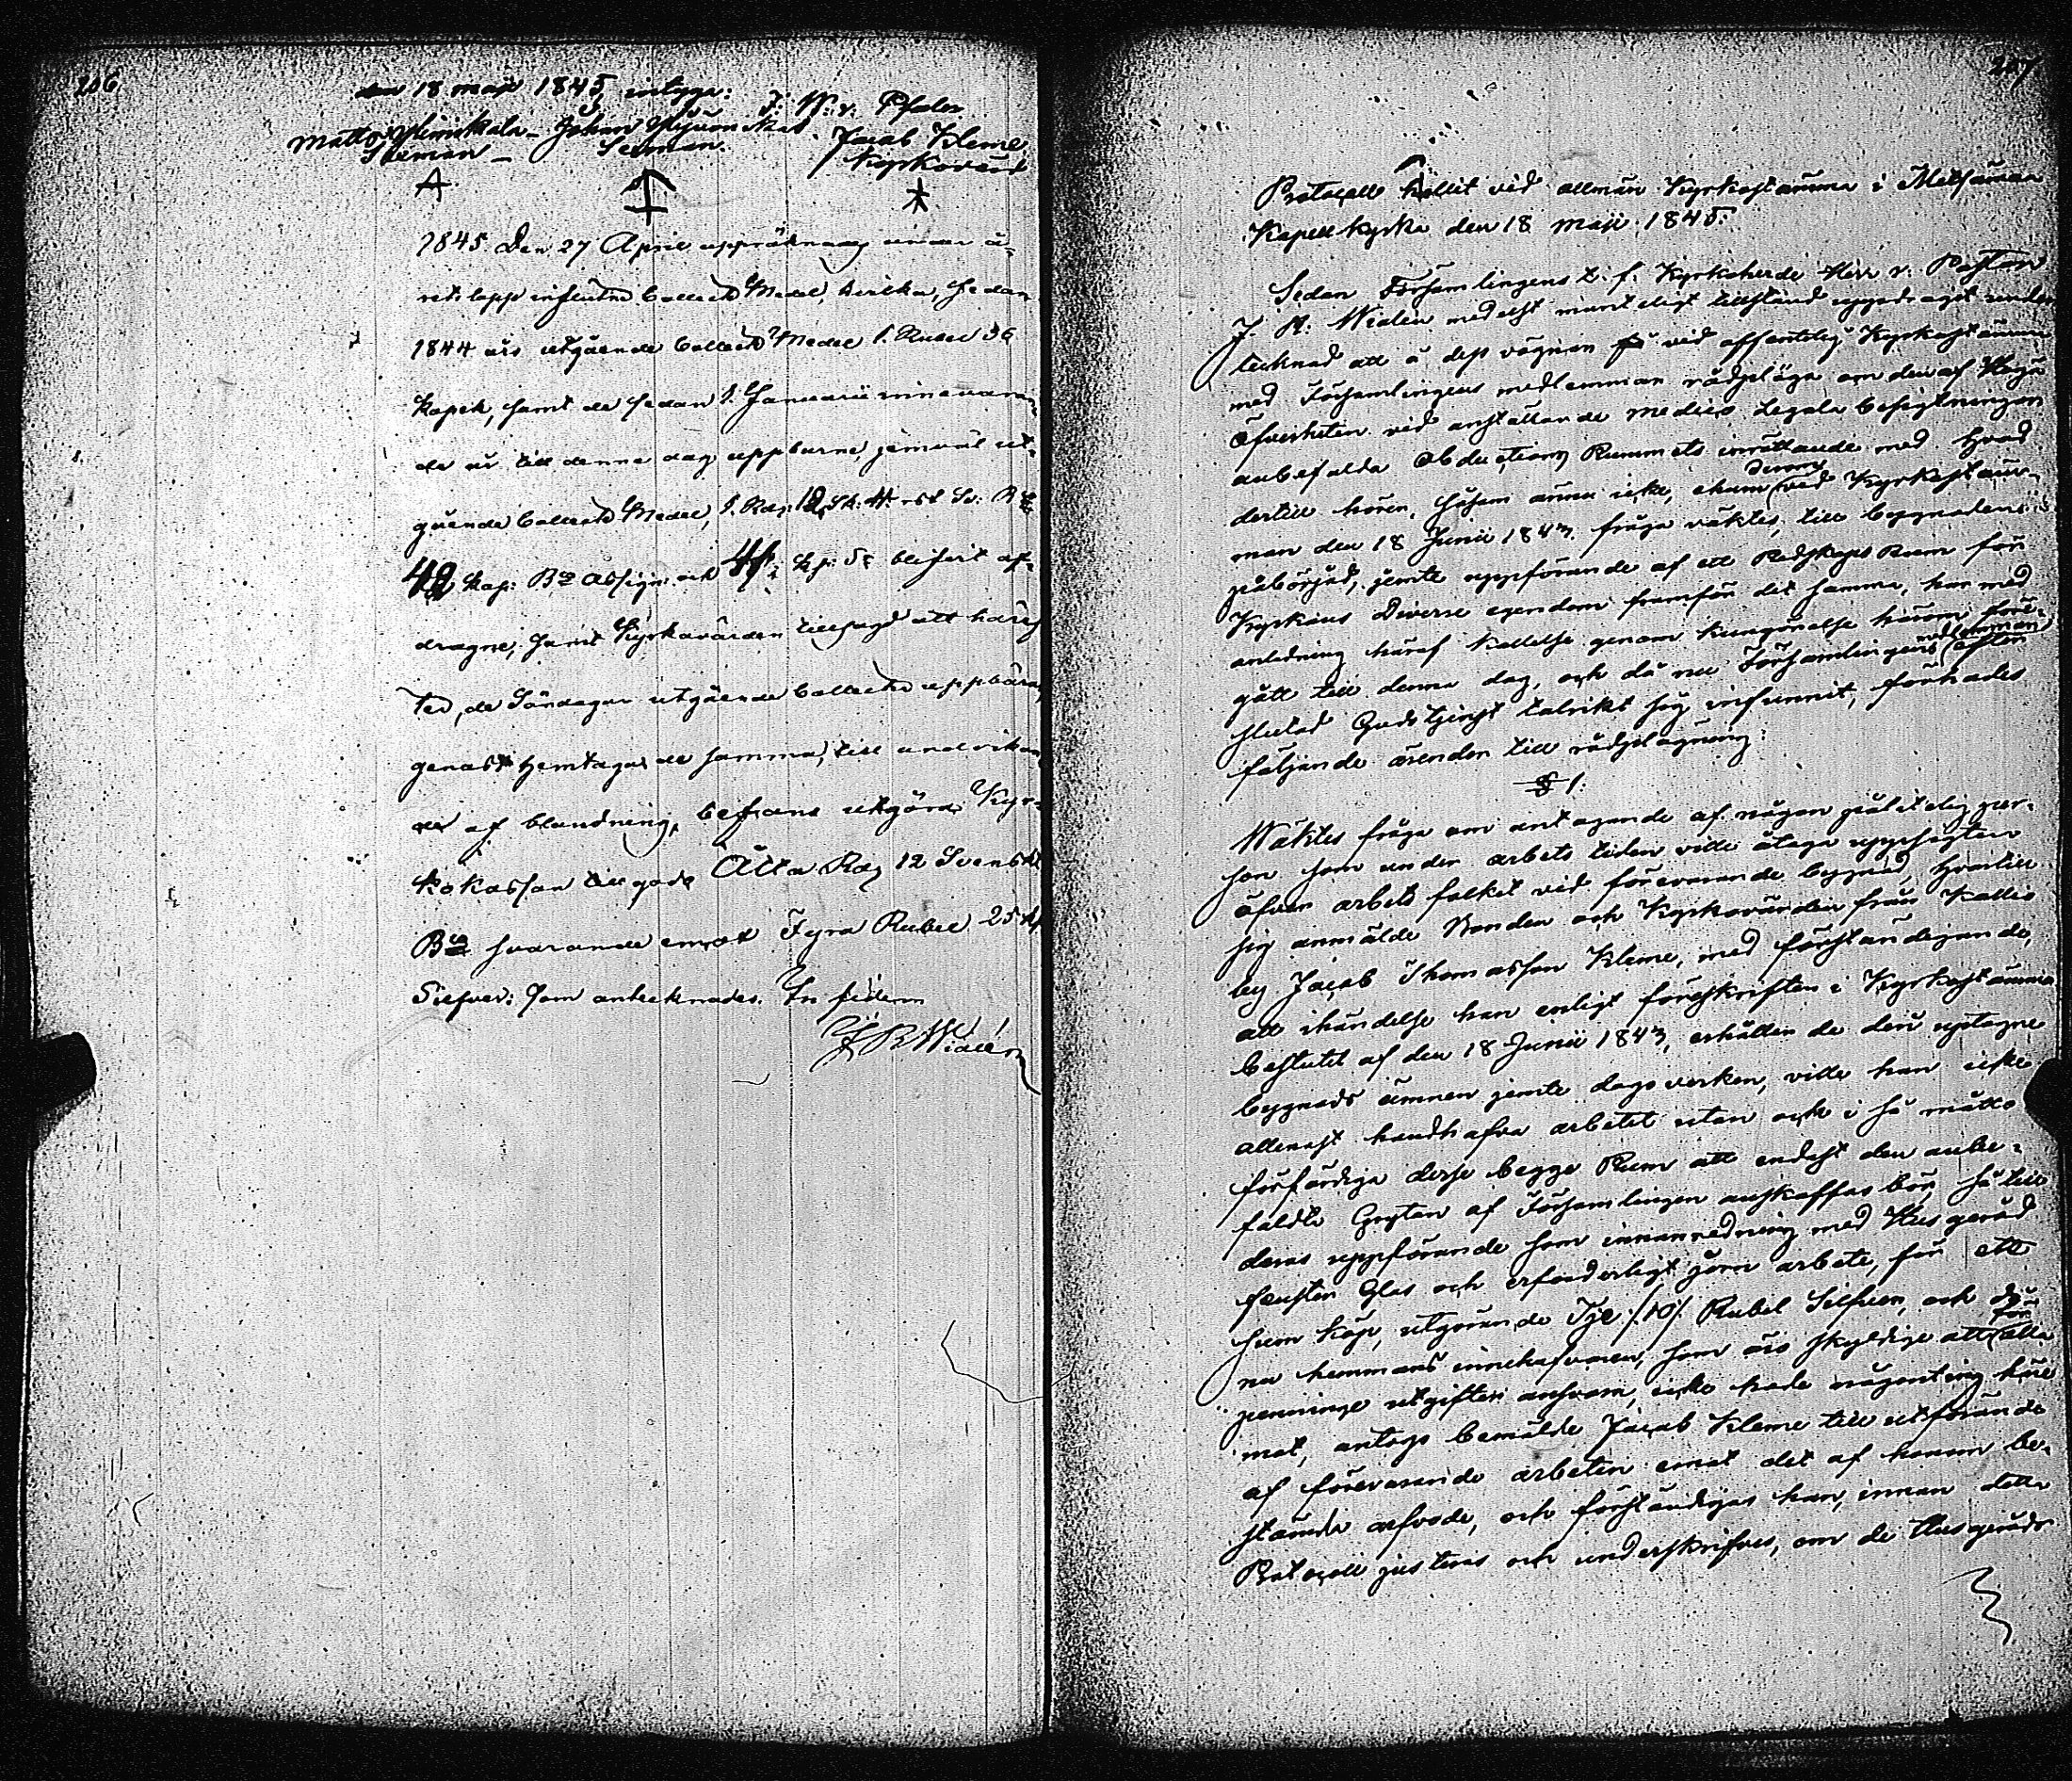 206
den 18 Maji 1845, intyga:
J: W: v: Pfaler
Matts Heinikala – Johan
Jacob Kleme
Sexman – Sexman.
Kyrkovärd
1845 Den 27 April uppräknades innan å-
rets lopp influtne Collect Medel, hvilka, sedan
1844 års utgående Collect Medel 1. Rubel 36
Kopek, samt de sedan 1. Januarii innevaran-
de år till denna dag uppburne, jemväl ut-
gående Collect Medel, 1. Rdr: 12 Sk: 4. rst Sv: Bco
48 Kop: Bco Assign: och 41 Kp: Sr blifvit af-
dragne, samt Kyrkovärden tillsagd att häref-
ter, de Söndagar utgående Collecter uppbäras,
genast hemtaga de samma, till undvikan-
de af blandning, befans utgöra Kyr-
kokassan till godo Åtta Rdr 12 Svenskt
Bco svarande emot Fyra Rubel 25 Kp
Silfver: Som antecknades. In fidem
J R Widlén
207
Protocoll hållit vid allmän Kyrkostämma i Metsämaa
Kapell kyrka den 18 Maji 1845.
Sedan Församlingens t. f. Kyrkoherde Herr v. Pastor
J. R. Widlén medelst munteligt tillstånd uppdragit under
tecknad att å dess vägnar vid offentelig Kyrkostämma
med Församlingens medlemmar rådslåga om den af Höga
Öfverheten vid anställande medico Legala besigtningar
anbefalda Obductions Rummets inrättande med hvad
dertill hörer, såsom ännu icke, ehuru derom vid Kyrkostäm-
man den 18 Junii 1843 fråga väktes, till byggnaden
påbörjad, jemte uppförande af ett Redskaps Rum för
Kyrkans Diverse egendom framför det samma, har med
anledning häraf kallelse genom kungörelse härom före-
gått till denna dag, och då nu Församlingens medlemmar efter
slutad Gudstjenst talrikt sig infunnit, förehades
följande ärender till rådslagning:
§ 1.
Wäktes fråga om antagande af någon pålitelig per-
son som under arbets tiden ville åtaga uppsigten
öfver arbets folket vid förevarande byggnad, hvartill
sig anmälde Bonden och Kyrkovärden från Kallis
by Jacob Thomasson Kleme, med förständigande,
att ihändelse han enligt föreskriften i Kyrkostämmo
beslutet af den 18 Junii 1843, erhåller de deri uptagne
byggnads ämnen jemte dagsverken, ville han icke
allenast handhafva arbetet utan ock i så måtto
förfärdiga desse begge Rum att endast den anbe-
faldte Grytan af Församlingen anskaffas bör, så till
deras uppförande som innanredning med Husgeråd
fenster Glas och erforderligt jern arbete, för ett
för
summ köp, utgörande Tjo /:20:/ Rubel Silfver, och då
na hemmans innehafvaren, som äro skyldige att alla
penninge utgifter ansvara, icke hade någonting häre-
mot, antogs bemälde Jacob Kleme till utförande
af förevarande arbeten emot det af honom be-
stämda arfvode, och förständigas han, innan detta
Protocoll justeras och underskrifves, om de Husgeråds